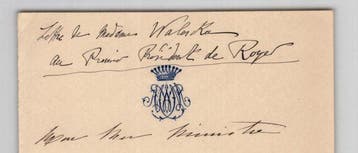 Lettre de Madame Waleska
au Premier Président de Royer
Mon cher Ministre